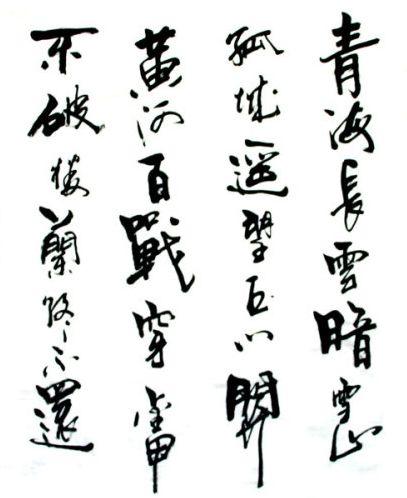 青海長雲暗雪山
孤城遥望玉门關
黄沙百戰穿金甲
不破楼蘭终不還